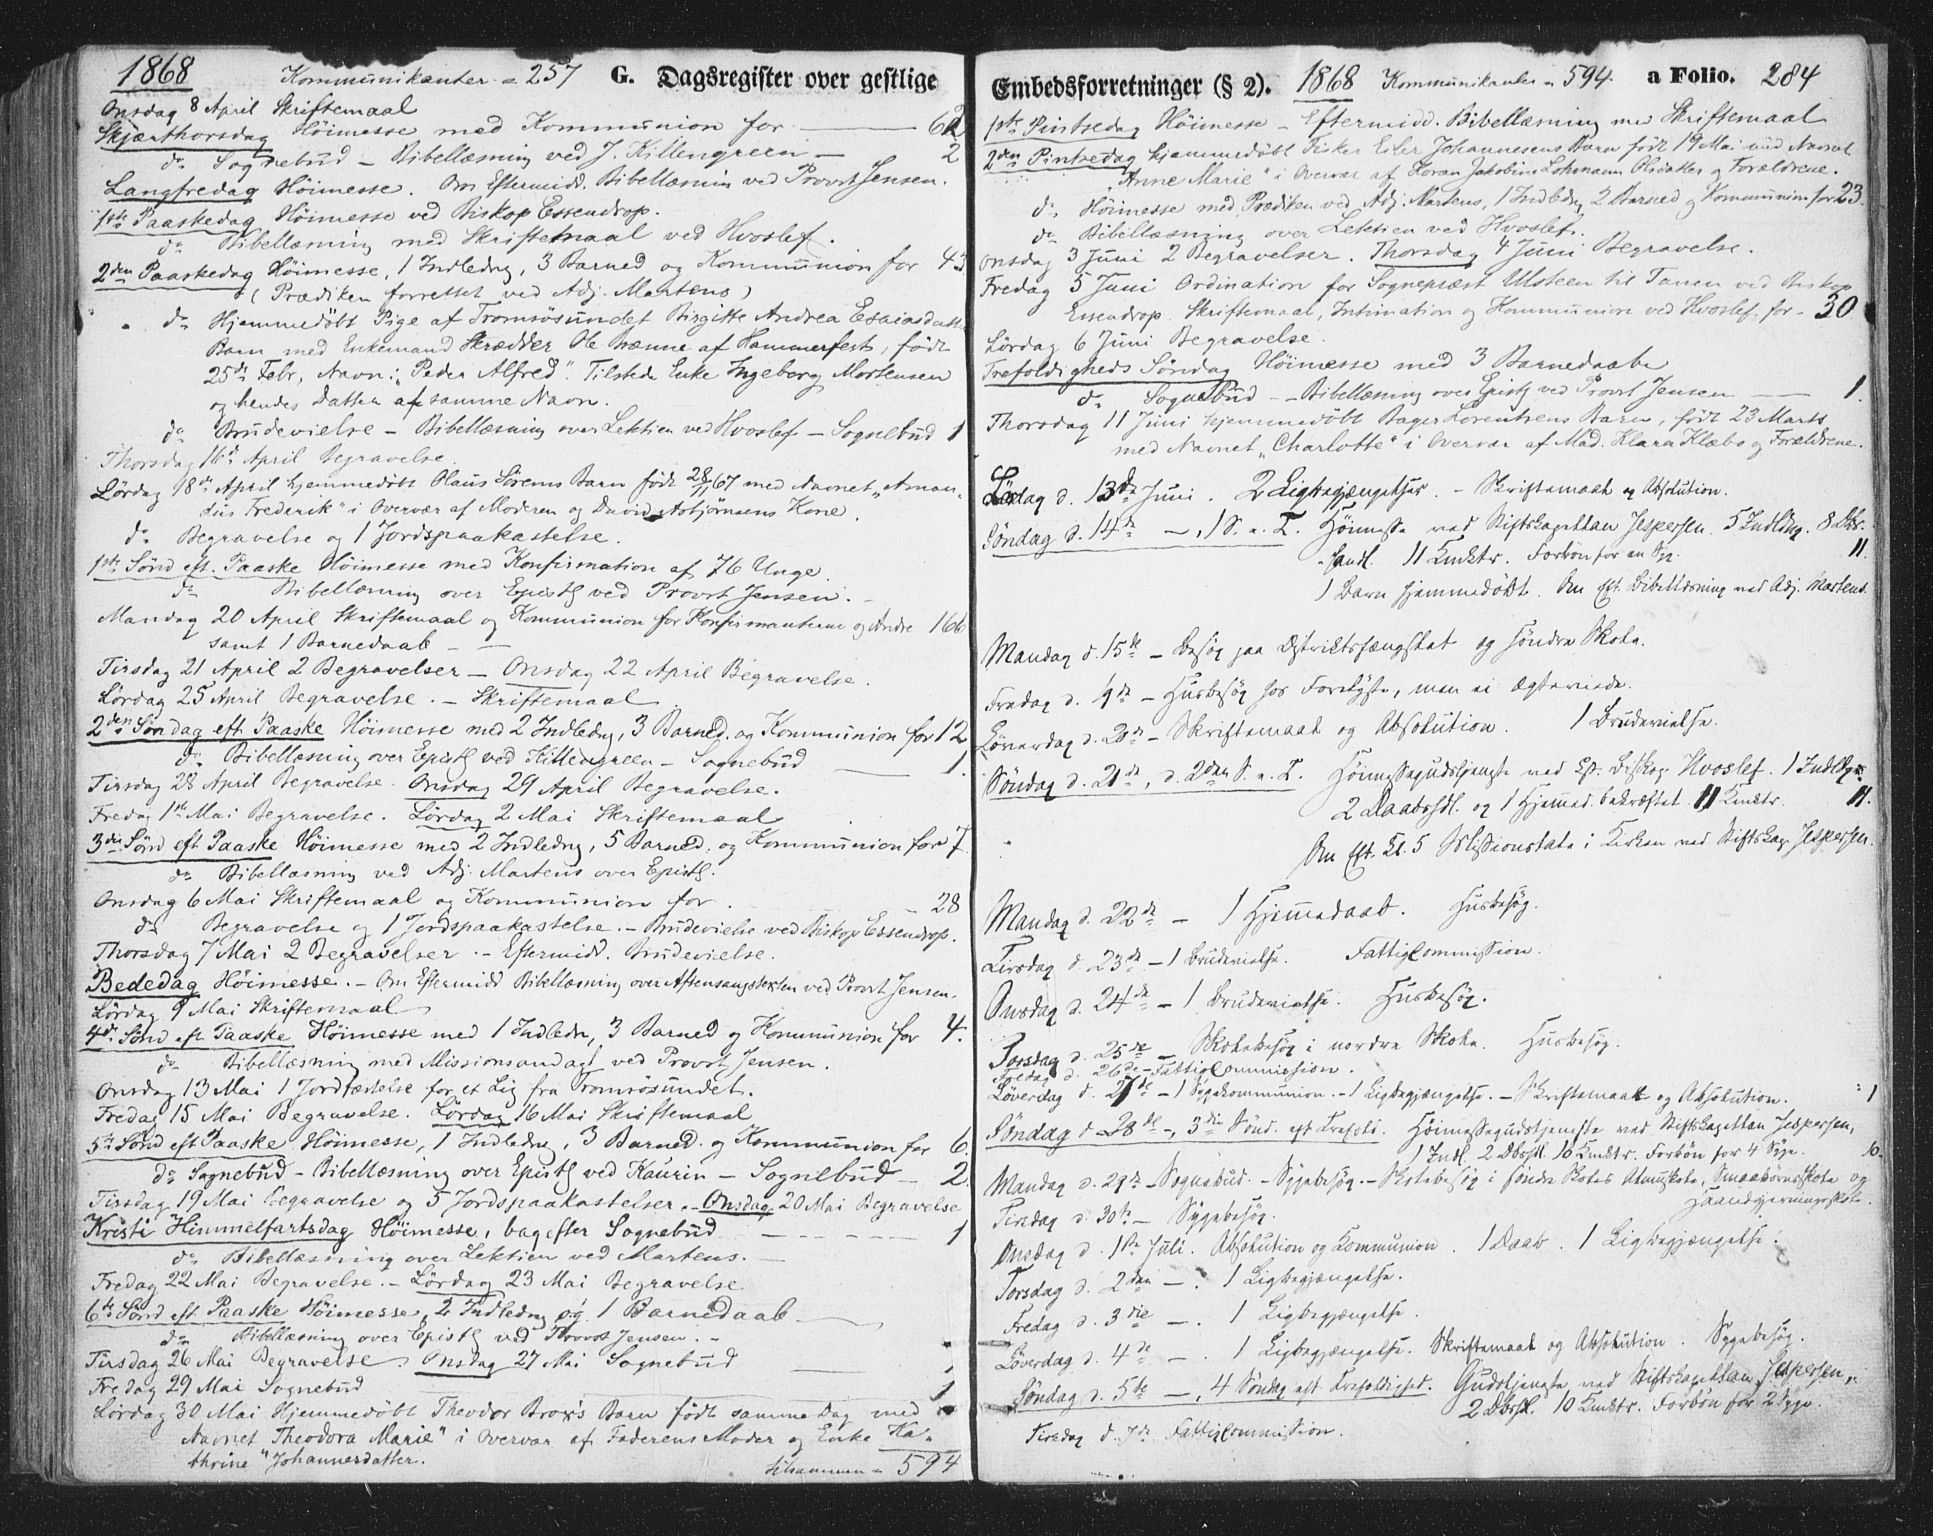 1868 Kommunikanter = 257 G. Dagsregister over gestlige
Onsdag 8 April Skriftemaal
Skjærthorsdag Höimesse med Kommunion for 62
do Sognebud – Bibellæsning ved J. Killengreen – 2
Langfredag Höimesse. Om Eftermidd. Bibellæsning ved Provst Jensen.
1ste Paaskedag Höimesse ved Biskop Essendrop.
do Bibellæsning med Skriftemaal ved Hvoslef.
2den Paaskedag Höimesse, 1 Indledng, 3 Barned og Kommunion for 43
(Prædiken forrettet ved Adj. Martens)
do Hjemmedöbt Pige af Tromsösundet Birgitte Andrea Esaiasdatters
Barn med Enkemand Skrædder Ole Hænne af Hammerfest, födt
25de Febr, Navn: "Peder Alfred". Tilstede Enke Ingeborg Mortensen
og hendes Datter af samme Navn.
do Brudevielse – Bibellæsning over Lektien ved Hvoslef – Sognebud 1
Thorsdag 16de April Begravelse
Lördag 18de April hjemmedöbt Olaus Sörens Barn födt 28/11 67 med Navnet "Aman-
dus Frederik" i Overvær af Moderen og David Asbjörnsens Kone.
do Begravelse og 1 Jordspaakastelse.
1ste Sönd eft. Paaske Höimesse med Konfirmation af 76 Unge.
do Bibellæsning over Epistl ved Provst Jensen. –
Mandag 20 April Skriftemaal og Kommunion for Konfirmanterne og Andre 166
samt 1 Barnedaab –
Tirsdag 21 April 2 Begravelser – Onsdag 22 April Begravelse.
Lördag 25 April Begravelse. – Skriftemaal
2den Söndag eft Paaske Höimesse med 2 Indledng, 3 Barned. og Kommunion for 12
do Bibellæsning over Epistl ved Killengreen – Sognebud 1.
Tirsdag 28 April Begravelse. Onsdag 29 April Begravelse.
Fredag 1ste Mai Begravelse. Lördag 2 Mai Skriftemaal
3die Sönd eft Paaske Höimesse med 2 Indledng, 5 Barned. og Kommunion for 7
do Bibellæsning ved Adj. Martens over Epistl.
Onsdag 6 Mai Skriftemaal og Kommunion for 28
do Begravelse og 1 Jordspaakastelse. – Brudevielse ved Biskop Essendrop.
Thorsdag 7 Mai 2 Begravelser – Eftermidd. Brudevielse.
Bededag Höimesse. – Om Eftermidd Bibellæsning over Aftensangstexten ved Provst Jensen.
Lördag 9 Mai Skriftemaal
4de Sönd eft Paaske Höimesse med 1 Indledn, 3 Barned og Kommunion for 4.
do Bibellæsning med Missionsandagt ved Provst Jensen.
Onsdag 13 Mai 1 Jordfæstelse for et Lig fra Tromsösundet.
Fredag 15 Mai Begravelse. Lördag 16 Mai Skriftemaal
5te Sönd eft Paaske Höimesse, 1 Indledng, 3 Barned. og Kommunion for 6.
do Sognebud – Bibellæsning over Epistl ved Kaurin – Sognebud – 2
Tirsdag 19 Mai Begravelse og 5 Jordspaakastelser. – Onsdag 20 Mai Begravelse
Kristi Himmelfartsdag Höimesse, bagefter Sognebud 1
do Bibellæsning over Lektien ved Martens.
Fredag 22 Mai Begravelse. – Lördag 23 Mai Begravelse
6te Sönd eft Paaske Höimesse, 2 Indledng og 1 Barnedaab
do Bibellæsning over Epistl ved Provst Jensen. –
Tirsdag 26 Mai Begravelse. Onsdag 27 Mai Sognebud
Fredag 29 Mai Sognebud 1
Lördag 30 Mai Hjemmedöbt Theodor Brox's Barn födt samme Dag med
Navnet "Theodora Marie" i Overvær af Faderens Moder og Enke Ka-
thrine Johannesdatter.
tilsammen = 594
Embedsforretninger (§ 2). 1868 Kommunikanter = 594. a Folio. 284
1ste Pintsedag Höimesse – Eftermidd. Bibellæsning med Skriftemaal
2den Pintsedag hjemmedöbt Fisker Eiler Johannesens Barn födt 19 Mai med Navnet
"Anne Marie" i Overvær af Jakobine Lohmann Olsdatter og Forældrene.
do Höimesse med Prædiken ved Adj. Martens, 1 Indledng 2 Barned og Kommunion for 23.
do Bibellæsning over Lektien ved Hvoslef.
Onsdag 3 Juni 2 Begravelser. Thorsdag 4 Juni Begravelse.
Fredag 5 Juni Ordination for Sognepræst Ulsteen til Tanen ved Biskop
Essendrop. Skriftemaal, Intimation og Kommunion ved Hvoslef for – 30
Lördag 6 Juni Begravelse.
Trefoldigheds Söndag Höimesse med 3 Barnedaabe
do Sognebud – Bibellæsning over Epistl ved Provst Jensen 1.
Thorsdag 11 Juni hjemmedöbt Bager Lorentzens Barn, födt 23 Marts
med Navnet "Charlotte" i Overvær af Mad. Klara Klæbo og Forældrene.
Lördag d. 13de Juni. 2 Ligbegjængelser – Skriftemaal og Absolution.
Söndag d. 14de –, 1 S. e. T. Höimesse ved Stiftskapellan Jespersen. 5 Indledng. 8 Dbs-
handl. 11 Kmktr. Forbön for en Syg. 11.
1 Barn hjemmedöbt. Om Eft. Bibellæsning ved Adj. Martens.
Mandag d. 15de – Besög paa Distriktsfængslet og söndre Skole.
Fredag d. 19de – Husbesög hos Forelyste, men ei Ægteviede.
Löverdag d. 20de – Skriftemaal og Absolution. 1 Brudevielse.
Söndag d. 21de, d. 2den S. e. T. Höimessegudstjeneste ved Eft. Biskop Hvoslef. 1 Indledg.
2 Daabshdl. og 1 Hjemmed. bekræftet. 11 Kmktr. 11.
Om Eft. Kl. 5 Missionstale i Kirken ved Stiftskap. Jespersen.
Mandag d. 22de – 1 Hjemmedaab. Husbesög.
Tirsdag d. 23de – 1 Brudevielse. Fattigcommission.
Onsdag d. 24de – 1 Brudevielse. Husbesög.
Torsdag d. 25de – Skolebesög i nordre Skole. Husbesög.
Fredag d. 26de – Fattigcommission.
Löverdag d. 27de – 1 Sygekommunion. – 1 Ligbegjængelse. – Skriftemaal og Absolution. 1
Söndag d. 28de –, 3die Sönd. eft Trefold. Höimessegudstjeneste ved Stiftskapellan Jespersen,
1 Indl. 2 Dbshdl. 10 Kmktr. Forbön for 4 Syge. 10.
Mandag d. 29de – Sognebud. – Sygebesög. – Skolebesög i söndre Skoles Almuskole, Smaabörnsskole og
Haandgjerningsskole.
Tirsdag d. 30te – Sygebesög.
Onsdag d. 1ste Juli. Absolution og Communion. 1 Daab. 1 Ligbegjængelse.
Torsdag d. 2den –. 1 Ligbegjængelse.
Fredag d. 3die –. 1 Ligbegjængelse.
Löverdag d. 4de –. 1 Ligbegjængelse. Skriftemaal og Absolution. Sygebesög.
Söndag d. 5te –, 4 Söndag eft Trefoldighed. Gudstjeneste ved Stiftskapellan Jespersen,
2 Dbshl. 10 Kmktr. Forbön for 2 Syge.
Tirsdag d. 7de. Fattigcommission.